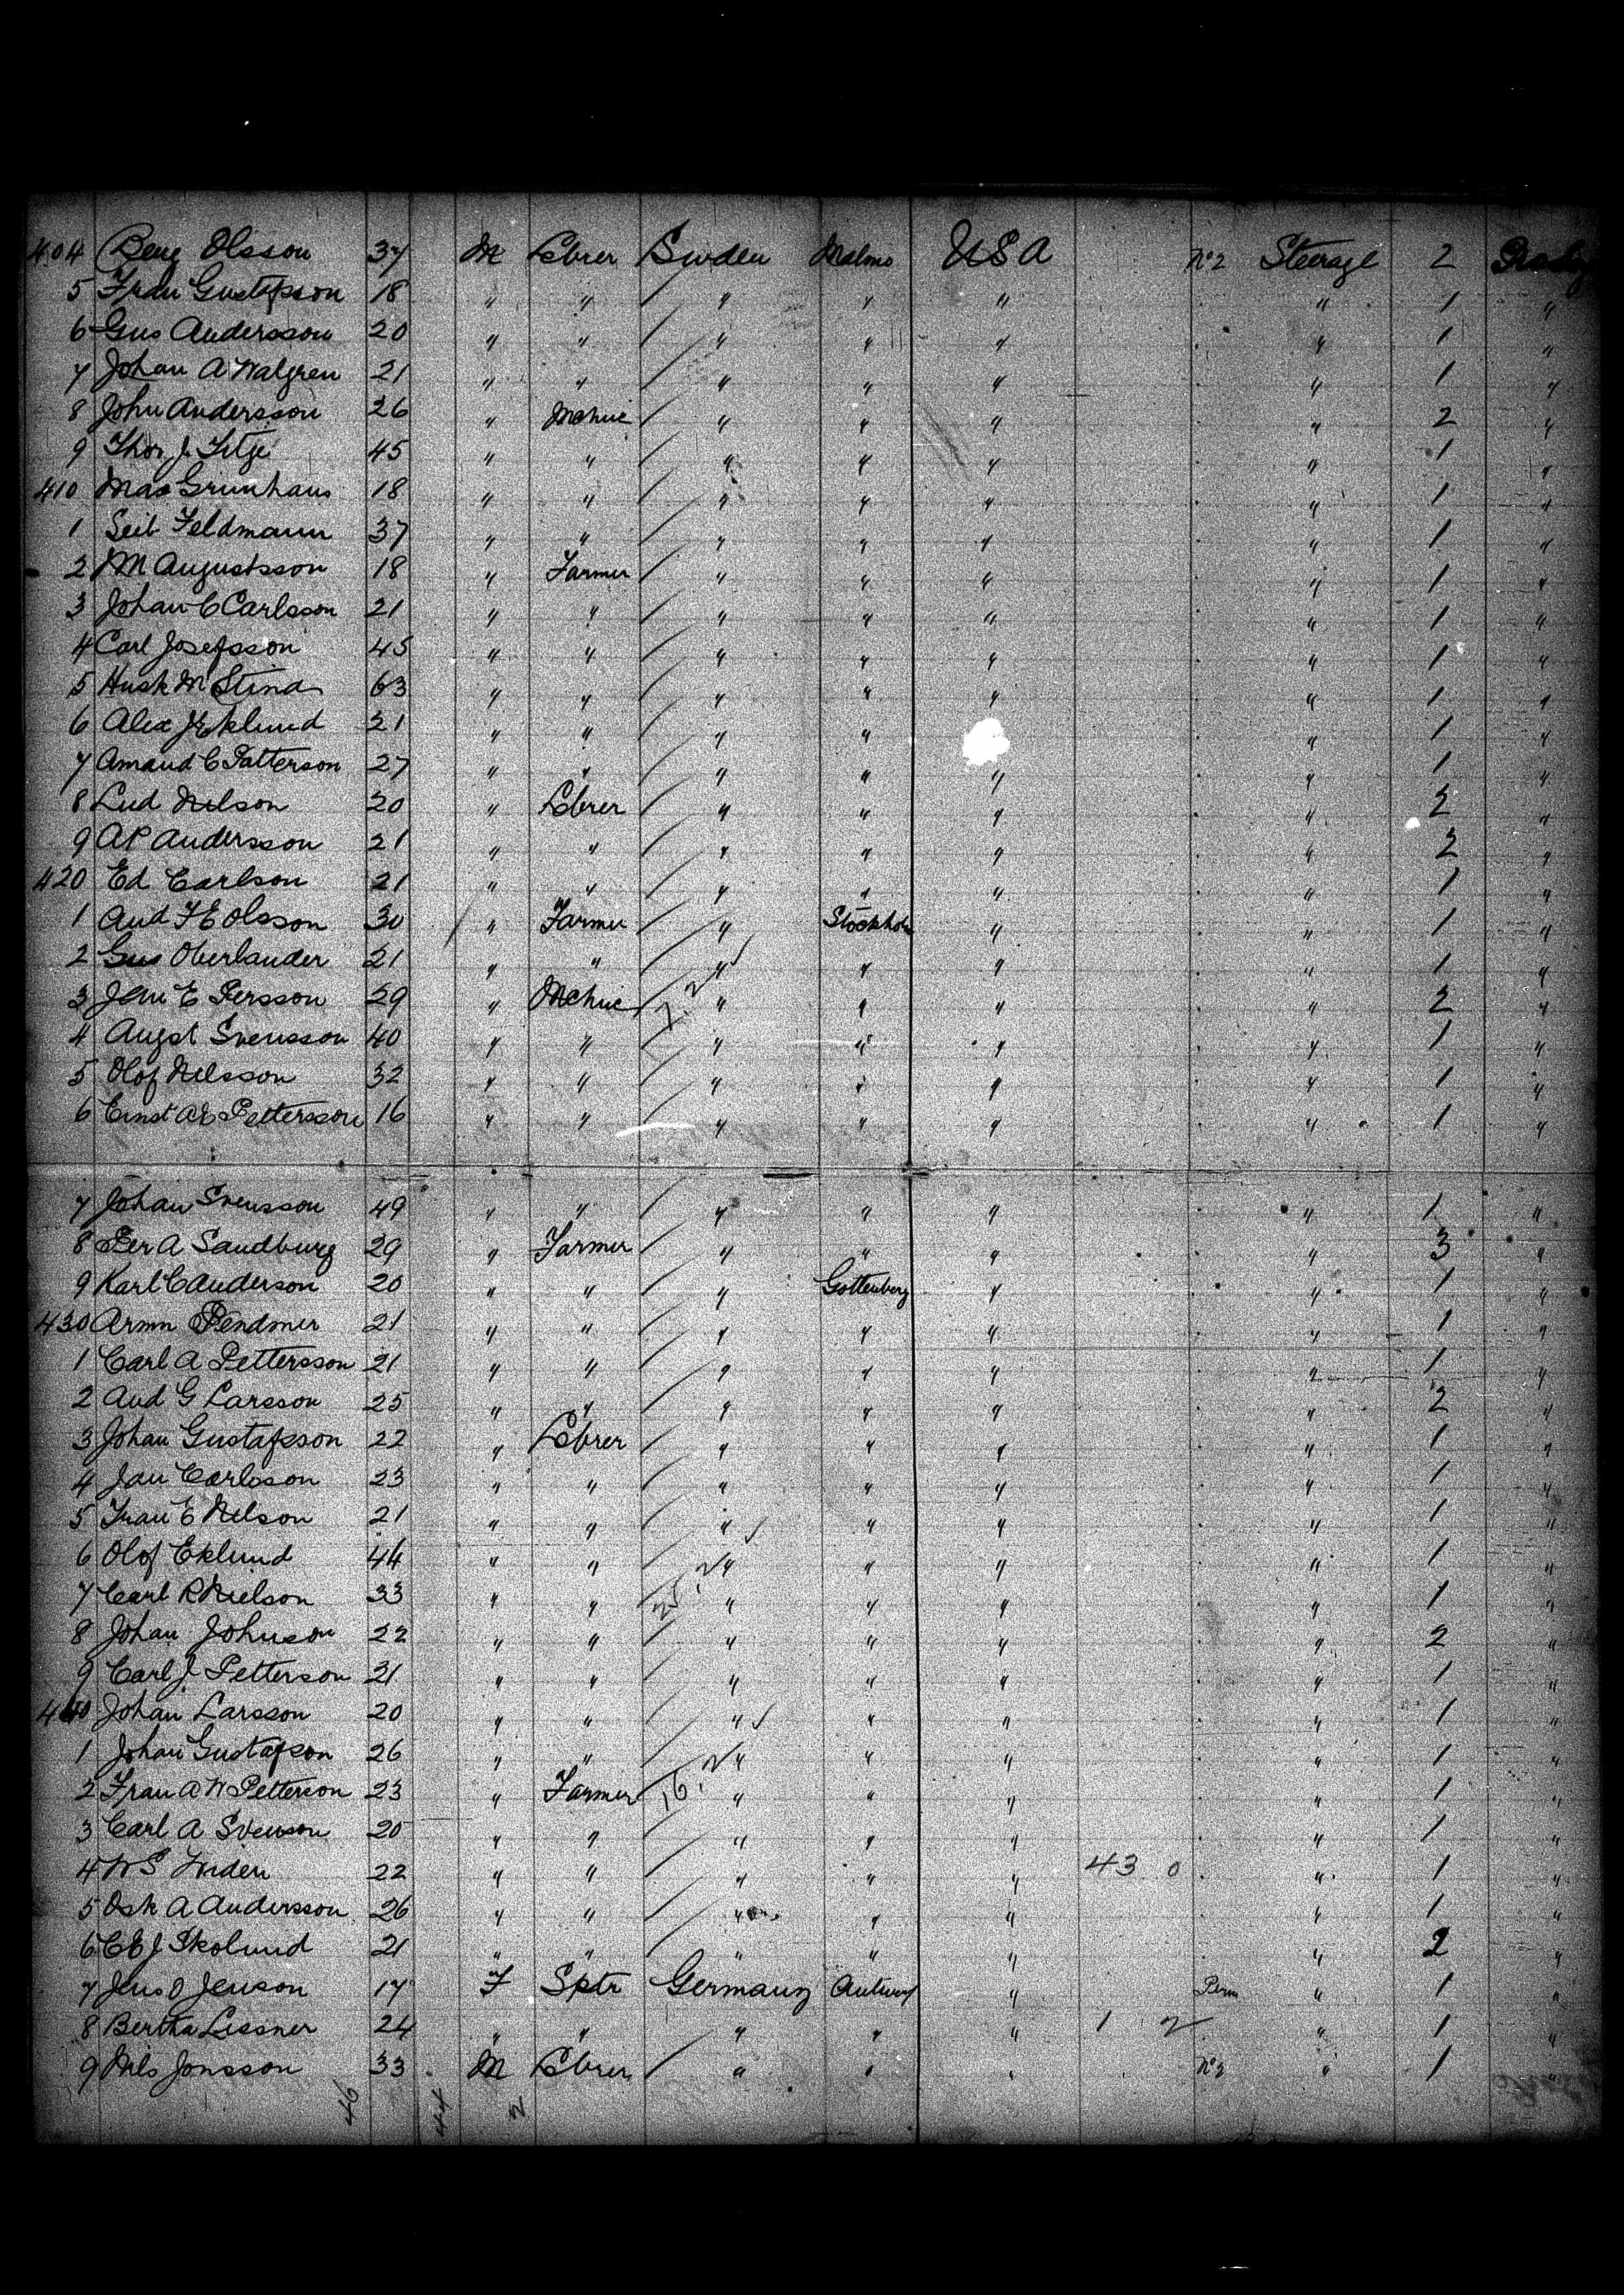 404 Beng Olsson 37 M Lbrer Sweden Malmo USA No2 Steerage 2
5 Fran Gustafsson 18 " " " " " " 1 "
6 Gus Andersson 20 " " " " " " 1 "
7 Johan A Walgren 21 " " " " " " 1 "
8 John Andersson 26 " Mchnic " " " " 2 "
9 Thos J 45 " " " " " " 1 "
410 Max Grunhaus 18 " " " " " " 1 "
1 Feldmann 37 " " " " " " 1 "
2 M Augustsson 18 " Farmer " " " " 1 "
3 Johan C Carlsson 21 " " " " " " 1 "
4 Carl Josefsson 45 " " " " " " 1 "
5 Husk M 63 " " " " " " 1 "
6 Alex J Eklund 21 " " " " " 1 "
7 Amand C Patterson 27 " " " " " " 1 "
8 Lud Nelson 20 " Lbrer " " " " 2 "
9 AP Andersson 21 " " " " " " 2 "
420 Ed Carlson 21 " " " " " " 1 "
1 And F E Olsson 30 " Farmer " Stockholm " " 1 "
2 Gus Oberlander 21 " " " " " " 1 "
3 E Persson 29 " Mchnic " " " " 2 "
4 Augst Svensson 40 " " " " " " 1 "
5 Olof Nelsson 32 " " " " " " 1 "
6 Ernst AE Pettersson 16 " " " " " " 1 "
7 Johan Svensson 49 " " " " " " 1 "
8 Per A Sandburg 29 " Farmer " " " " 3 "
9 Karl C Anderson 20 " " " Gottenberg " " 1 "
430 Armn 21 " " " " " " 1 "
1 Carl A Pettersson 21 " " " " " " 1 "
2 And G Larsson 25 " " " " " " 2 "
3 Johan Gustafsson 22 " Lbrer " " " " 1 "
4 Jan Carlsson 23 " " " " " " 1 "
5 Fran E Nelson 21 " " " " " " 1 "
6 Olof Eklund 44 " " " " " " 1 "
7 Carl R Nielson 33 " " " " " " 1 "
8 Johan Johnson 22 " " " " " " 2 "
9 Carl J Petterson 21 " " " " " " 1 "
440 Johan Larsson 20 " " " " " " 1 "
1 Johan Gustafson 26 " " " " " " 1 "
2 Fran A W Petterson 23 " Farmer " " " " 1 "
3 Carl A Svenson 20 " " " " " " 1 "
4 W S 22 " " " " " 43 0 " 1 "
5 Osk A Andersson 26 " " " " " " 1 "
6 C E J Skolund 21 " " " " " " 2 "
7 Jens O Jenson 17 F Sptr Germany Antwerp " " 1 "
8 Bertha Lissner 24 " " " " " 1 2 " 1 "
9 Nils Jonsson 33 M Lbrer " " " No2 " 1 "
46 44 2